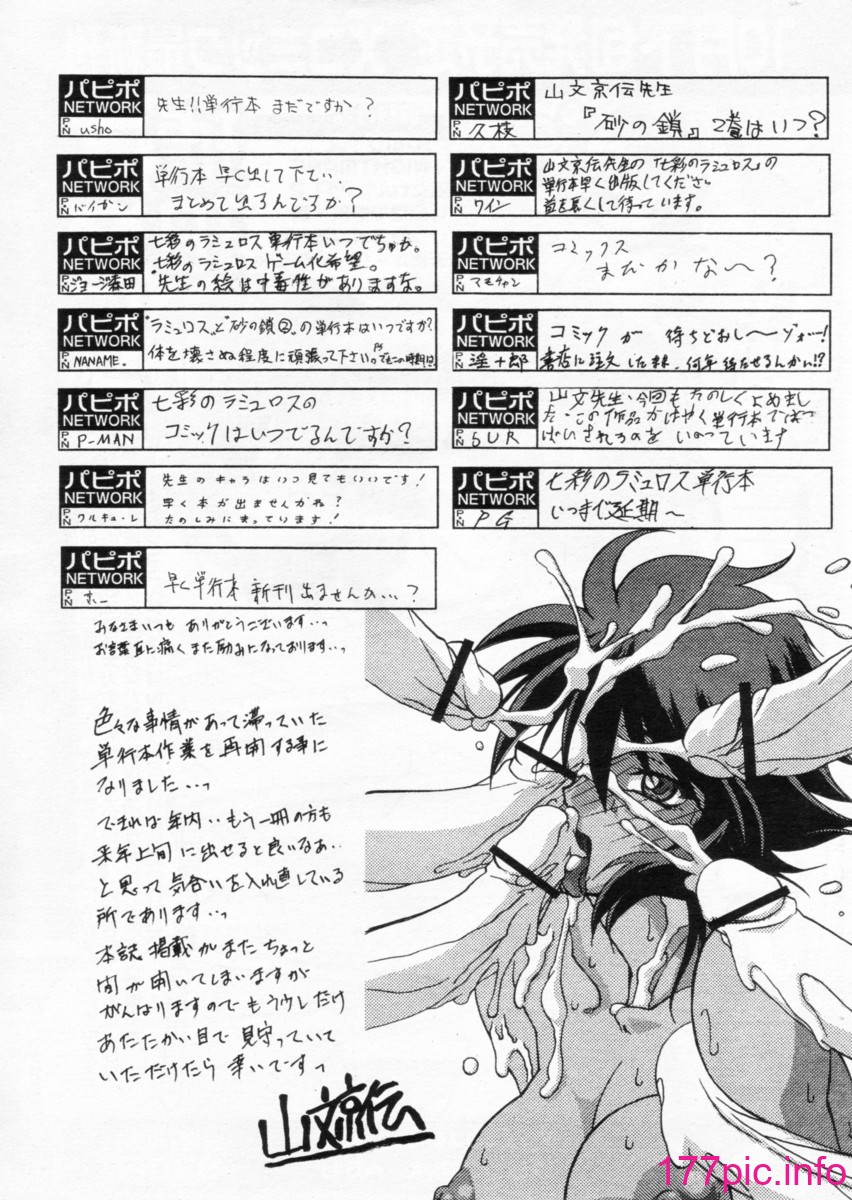 パピポ
NETWORK
PN usho
先生!!単行本 まだですか?
パピポ
NETWORK
PN バイガン
単行本 早く出して下さい..
まとめて出るんですか?
パピポ
NETWORK
PN ジョージ森田
七彩のラミュロス 単行本いつでちゅか。
七彩のラミュロス ゲーム化希望。
先生の絵は中毒性がありますな。
パピポ
NETWORK
PN NANAME.
"ラミュロス"と"砂の鎖②"の単行本はいつですか?
体を壊さぬ程度に頑張って下さい。
パピポ
NETWORK
PN P-MAN
七彩のラミュロスの
コミックはいつでるんですか?
パピポ
NETWORK
PN ワルキューレ
先生のキャラはいつ見てもいいです!
早く本が出ませんかね?
たのしみにまっています!
パピポ
NETWORK
PN ホー
早く単行本 新刊出ませんか...?
パピポ
NETWORK
PN 久枝
山文京伝先生
『砂の鎖』2巻はいつ?
パピポ
NETWORK
PN ワイン
山文京伝先生の「七彩のラミュロス」の
単行本早く出版してくださ
首を長くして待っています。
パピポ
NETWORK
PN マモチャン
コミックス
まだかな〜?
パピポ
NETWORK
PN 淫十郎
コミックが 待ちどおし〜ゾォー!
書店に注文したまま、何年待たせるんかい!?
パピポ
NETWORK
PN bUR
山文先生、今回もたのしくよめまし
た。この作品がはやく単行本ではつ
ばいされるのをいのっています
パピポ
NETWORK
PN PG
七彩のラミュロス単行本
いつまで延期〜
みなさまいつも ありがとうございます...っ
お言葉耳に痛く また励みになっております...っ
色々な事情があって滞っていた
単行本作業を再開する事に
なりました...っ
できれば年内..もう一冊の方も
来年上旬に出せると良いなあ..
と思って気合いを入れ直している
所であります...っ
本誌掲載がまた ちょっと
間が開いてしまいますが
がんばりますので もう少しだけ
あたたかい目で 見守っていて
いただけたら 幸いですっ
山文京伝
177pic.info